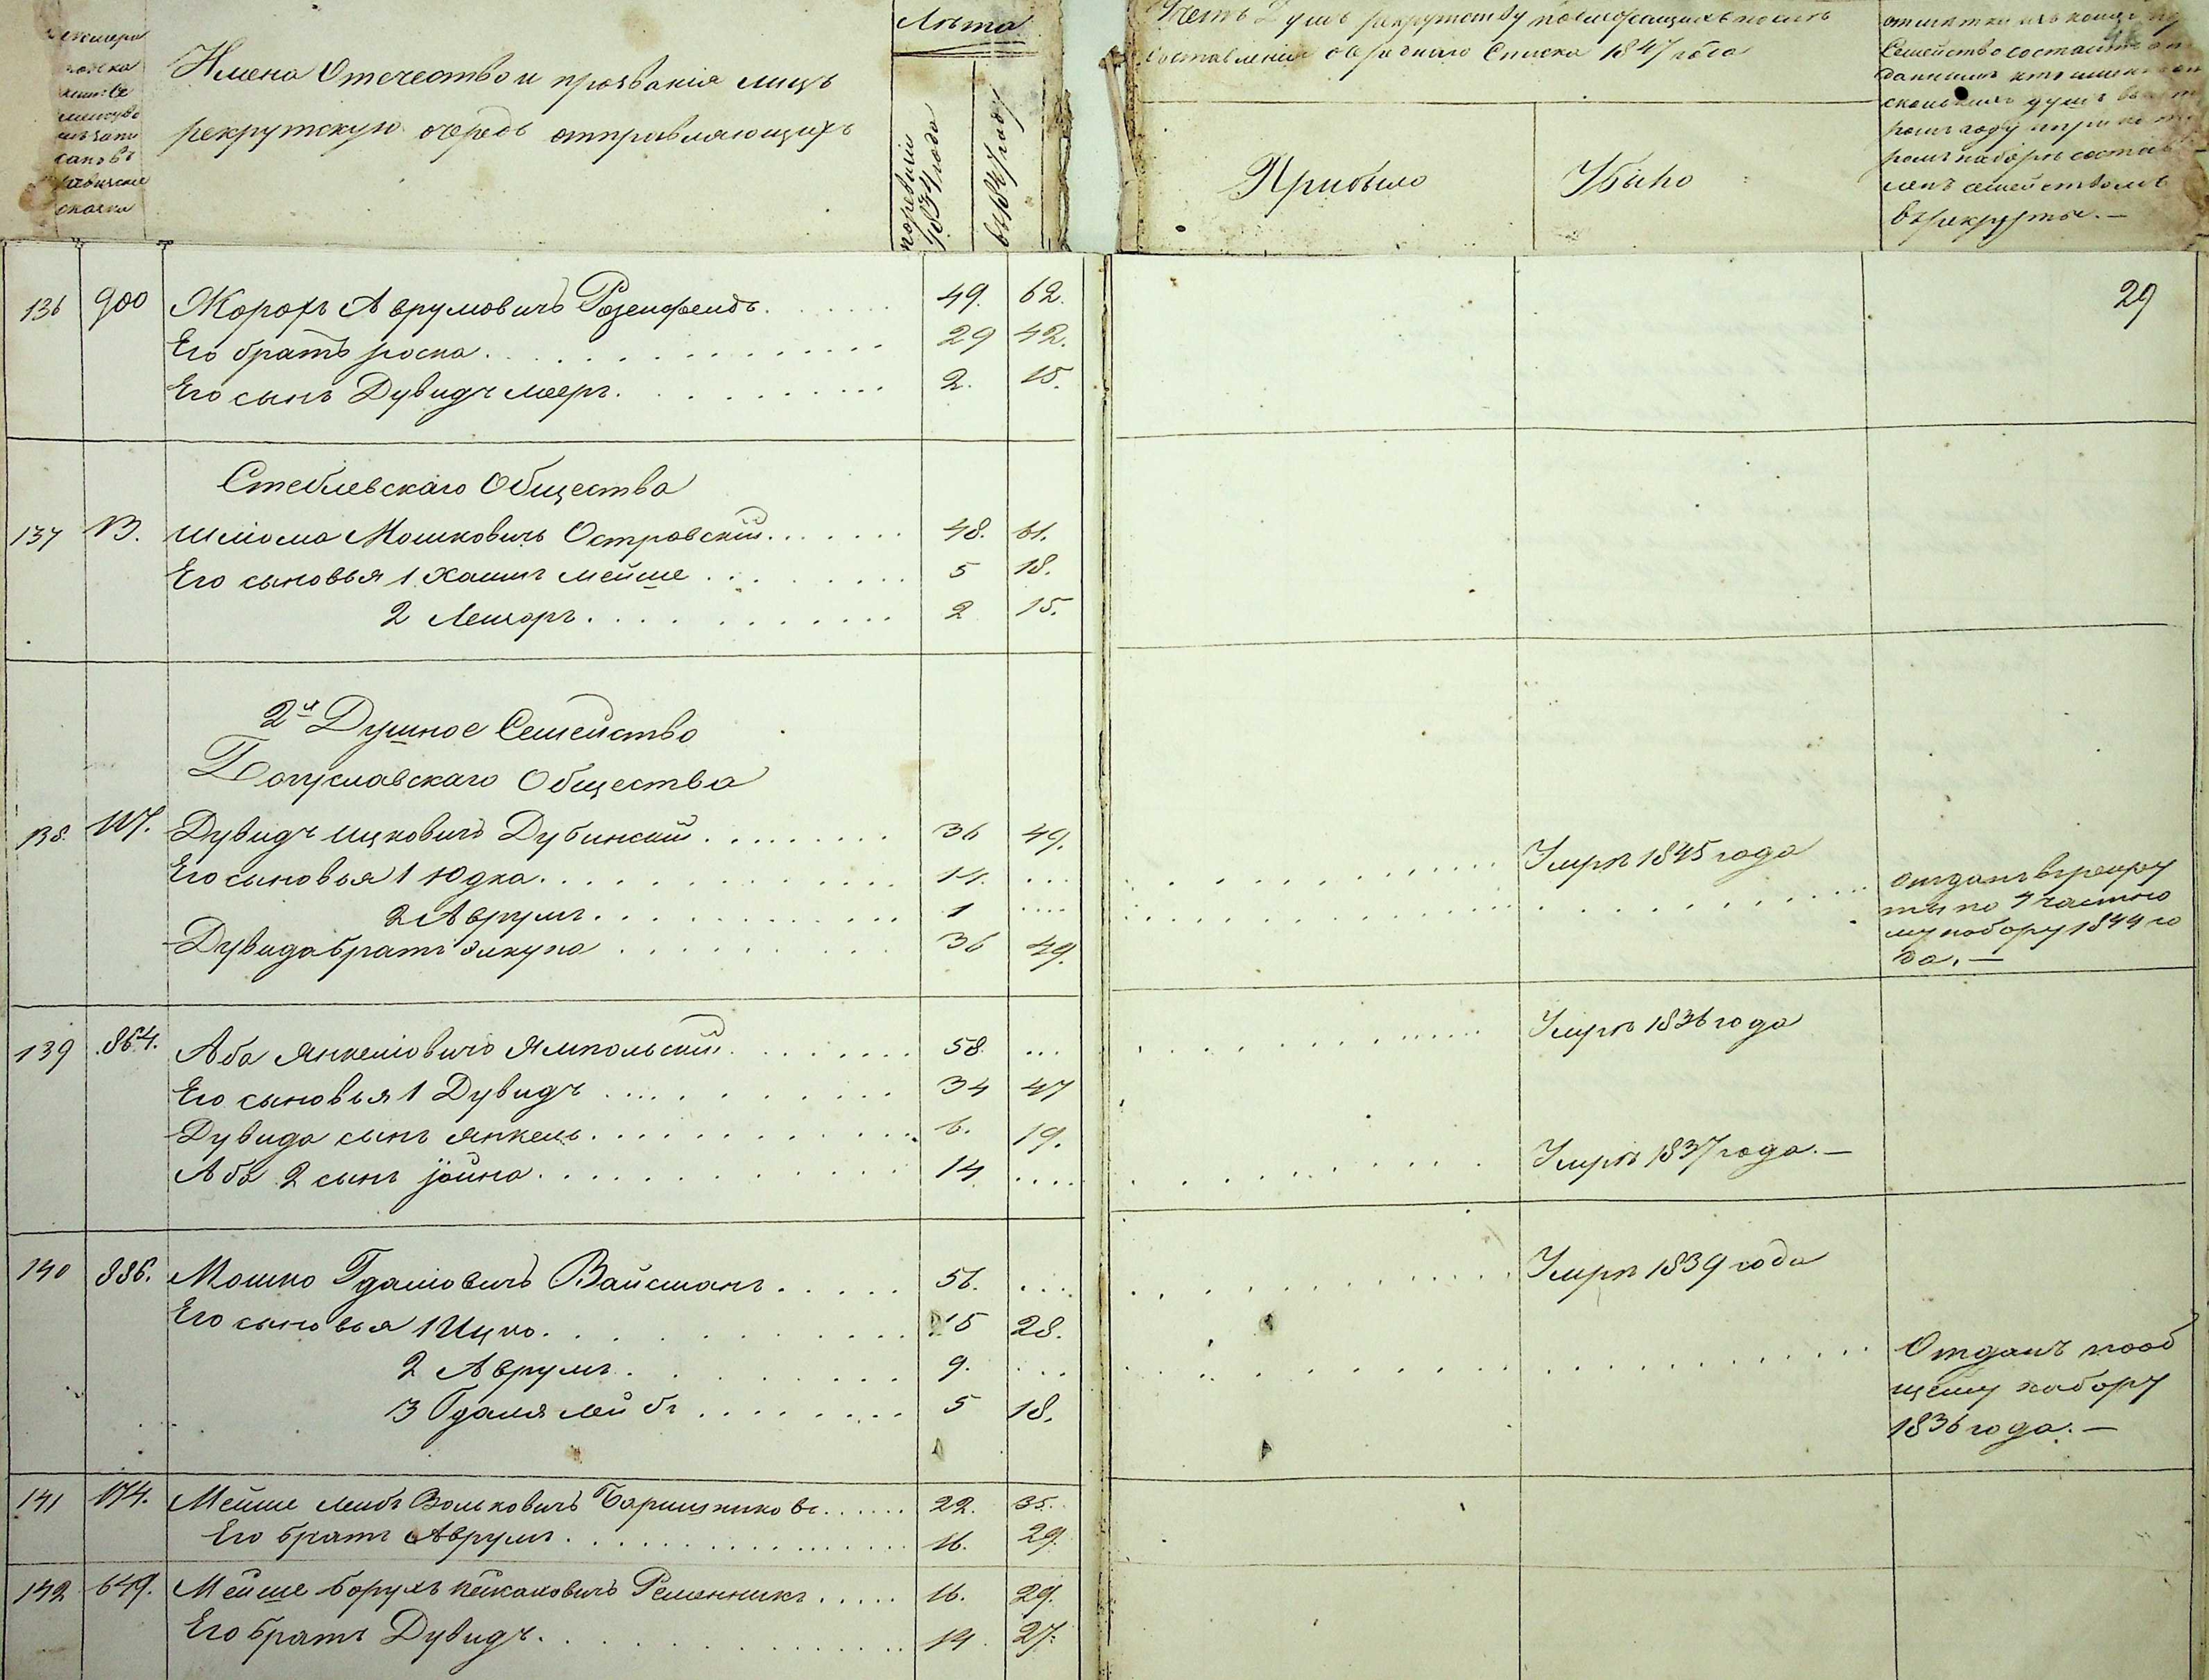 Имена Отечество и прозвания лицъ
рекрутскую очередь отправляющихъ
Лѣта
по ревизіи 1834 года
въ 1847 году
рекрутству
составленія очереднаго Списка 1847 года
Прибыло
Убыло
Семейство состоитъ
сколько душъ
въ рекруты. —
29
136 900 Жорохъ Аврумовичъ Розенфельдъ 49. 62.
Его братъ Іоска 29 42.
Его сынъ Дувидъ Мееръ 2. 15.
Стеблевскаго Общества
137 13. Шліома Мошковичъ Островскій 48. 61.
Его сыновья 1 Хаимъ Мейше 5 18.
2 Лейзоръ 2 15.
2х Душное Семейство
Богуславскаго Общества
138. 117. Дувидъ Ицковичъ Дубинскій 36 49. Умръ 1845 года
Его сыновья 1 Юдка 14. ...
2 Аврумъ 1 .... отданъ въ рекру
ты по 4 частно
му набору 1844 го
да. —
Дувида братъ Элкуна 36 49.
139 864. Аба Янкеліовичъ Ямпольскій 58. ... Умръ 1836 года
Его сыновья 1 Дувидъ 34 47
Дувида сынъ Янкель 6. 19.
Аба 2 сынъ Іойна 14 .... Умръ 1837 года. —
140 886. Мошко Гдаліовичъ Вайсманъ 56. .... Умръ 1839 года
Его сыновья 1 Ицко 15 28.
2 Аврумъ 9. ... Отданъ по об
щему набору
1836 года. —
3 Гдаля Лейбъ 5 18.
141 174. Мейше Лейбъ Вольковичъ Барышниковъ 22. 35.
Его братъ Аврумъ 16. 29.
142 649. Мейше Борухъ Ременникъ 16. 29.
Его братъ Дувидъ 14. 27.